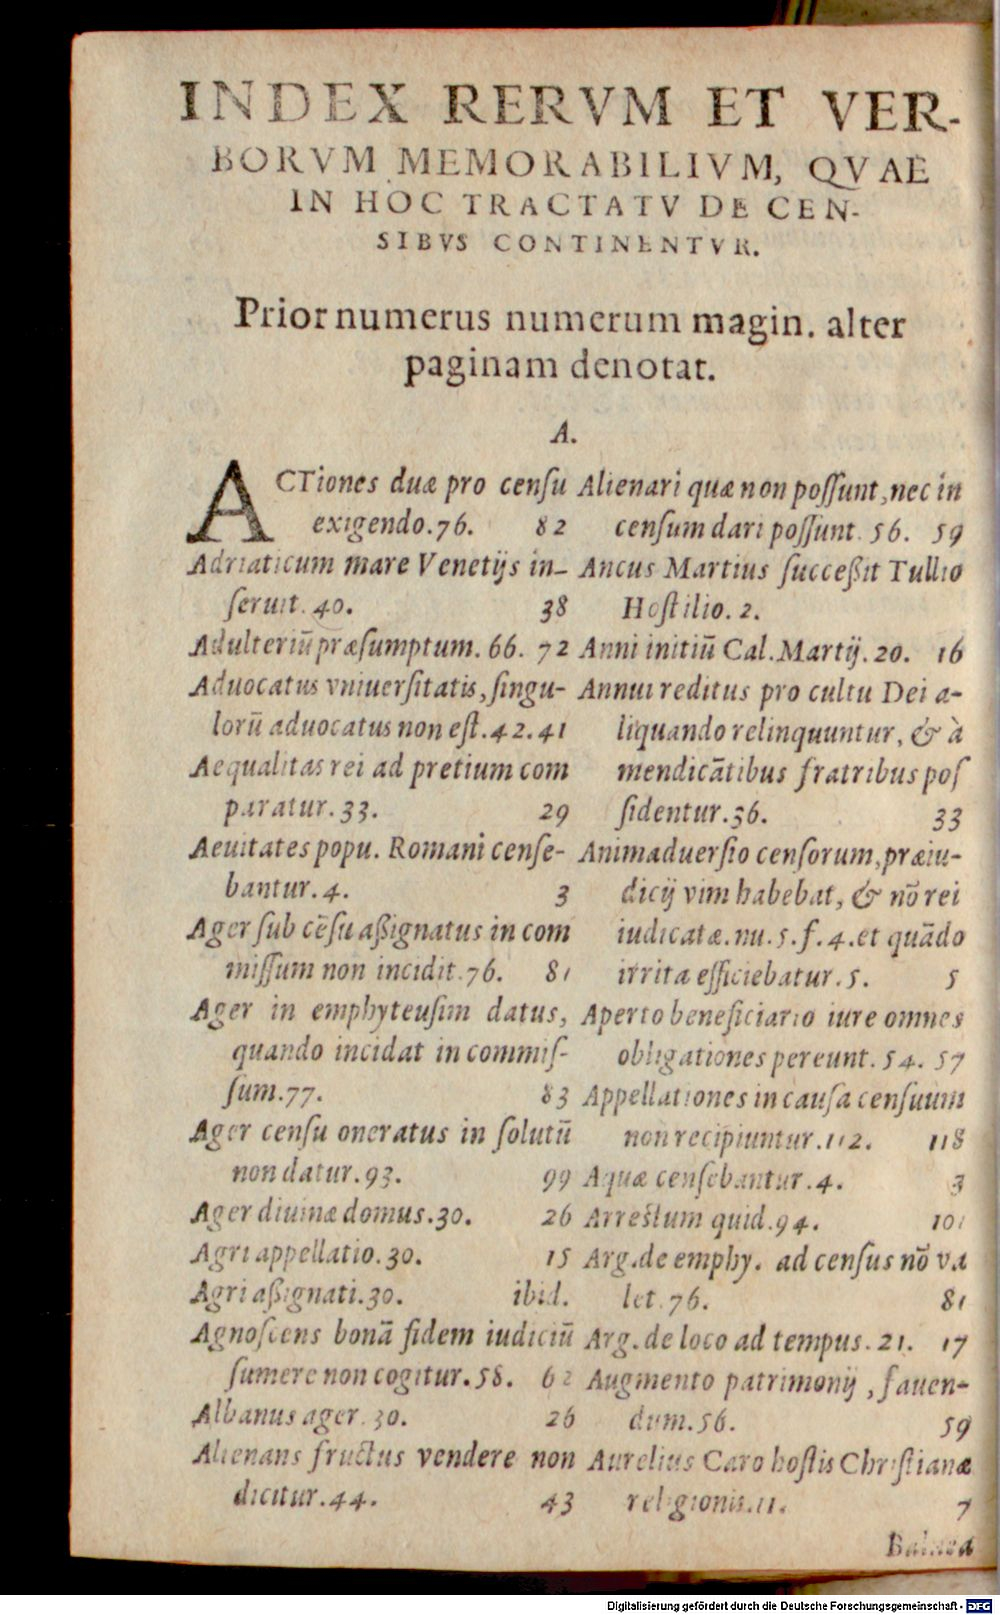 INDEX RERVM ET VER-
BORVM MEMORABILIVM, QVAE
IN HOC TRACTATV DE CEN-
SIBVS CONTINENTVR.
Prior numerus numerum magin. alter
paginam denotat.
A.
ACTiones duæ pro censu
exigendo. 76. 82
Adriaticum mare Venetijs in-
seruit. 40. 38
Adulteriū præsumptum. 66. 72
Aduocatus vniuersitatis, singu-
lorū aduocatus non est. 42. 41
Aequalitas rei ad pretium com
paratur. 33. 29
Aeuitates popu. Romani cense-
bantur. 4. 3
Ager sub cēsu aßignatus in com
missum non incidit. 76. 81
Ager in emphyteusim datus,
quando incidat in commis-
sum. 77. 83
Ager censu oneratus in solutū
non datur. 93. 99
Ager diuinæ domus. 30. 26
Agri appellatio. 30. 15
Agri aßignati. 30. ibid.
Agnoscens bonā fidem iudiciū
sumere non cogitur. 58. 62
Albanus ager. 30. 26
Alienans fructus vendere non
dicitur. 44. 43
Alienari quæ non possunt, nec in
censum dari possunt. 56. 59
Ancus Martius succeßit Tullio
Hostilio. 2.
Anni initiū Cal. Martij. 20. 16
Annui reditus pro cultu Dei a-
liquando relinquuntur, & à
mendicātibus fratribus pos
sidentur. 36. 33
Animaduersio censorum, præiu-
dicij vim habebat, & nō rei
iudicatæ. nu. 5. f. 4. et quādo
irrita efficiebatur. 5. 5
Aperto beneficiario iure omnes
obligationes pereunt. 54. 57
Appellationes in causa censuum
non recipiuntur. 112. 118
Aquæ censebantur. 4. 3
Arrestum quid. 94. 101
Arg. de emphy. ad census nō va
let. 76. 81
Arg. de loco ad tempus. 21. 17
Augmento patrimonij, fauen-
dum. 56. 59
Aurelius Caro hostis Christianæ
religionis. 11. 7
Balnea
Digitalisierung gefördert durch die Deutsche Forschungsgemeinschaft - DFG